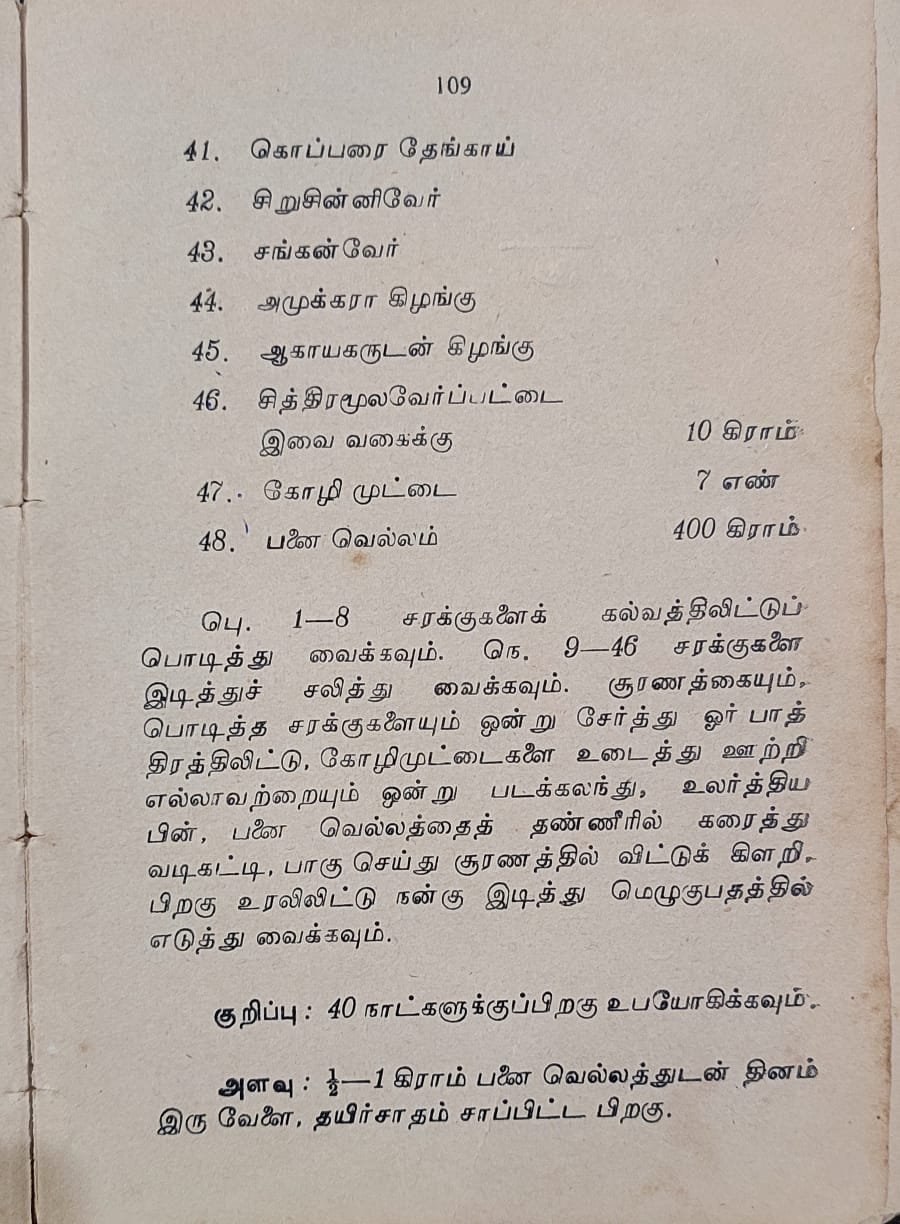 109
41. கொப்பரை தேங்காய்
42. சிறுசின்னிவேர்
43. சங்கன்வேர்
44. அமுக்கரா கிழங்கு
45. ஆகாயகருடன் கிழங்கு
46. சித்திரமூலவேர்ப்பட்டை
இவை வகைக்கு 10 கிராம்
47. கோழி முட்டை 7 எண்
48. பனை வெல்லம் 400 கிராம்
பெ. 1—8 சரக்குகளைக் கல்வத்திலிட்டுப்
பொடித்து வைக்கவும். நெ. 9—46 சரக்குகளை
இடித்துச் சலித்து வைக்கவும். சூரணத்கையும்,
பொடித்த சரக்குகளையும் ஒன்று சேர்த்து ஓர் பாத்
திரத்திலிட்டு, கோழிமுட்டைகளை உடைத்து ஊற்றி
எல்லாவற்றையும் ஒன்று படக்கலந்து, உலர்த்திய
பின், பனை வெல்லத்தைத் தண்ணீரில் கரைத்து
வடிகட்டி, பாகு செய்து சூரணத்தில் விட்டுக் கிளறி,
பிறகு உரலிலிட்டு நன்கு இடித்து மெழுகுபதத்தில்
எடுத்து வைக்கவும்.
குறிப்பு : 40 நாட்களுக்குப்பிறகு உபயோகிக்கவும்.
அளவு : ½—1 கிராம் பனை வெல்லத்துடன் தினம்
இரு வேளை, தயிர்சாதம் சாப்பிட்ட பிறகு.